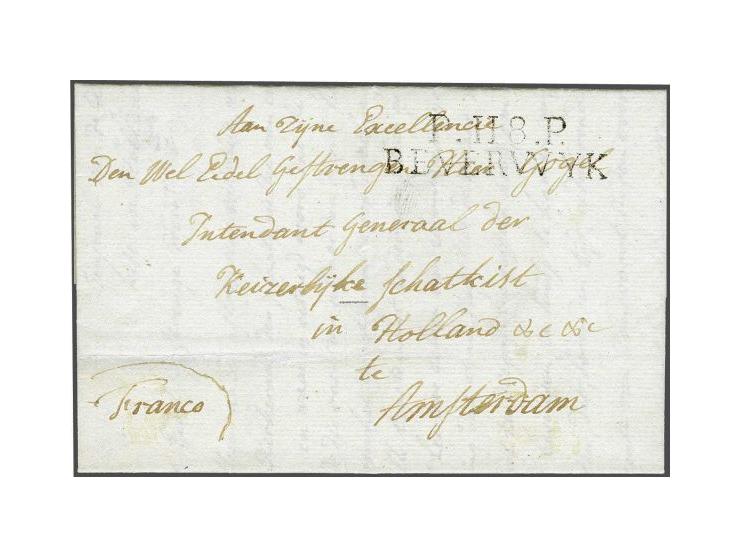 Aan zijne Excellencie
P.118.P.
Den Wel Eedel Gestrengen Heer Gogel
BEVERWYK
Intendant Generaal der
Keizerlijke schatkist
in Holland &c &c
te
Amsterdam
Franco